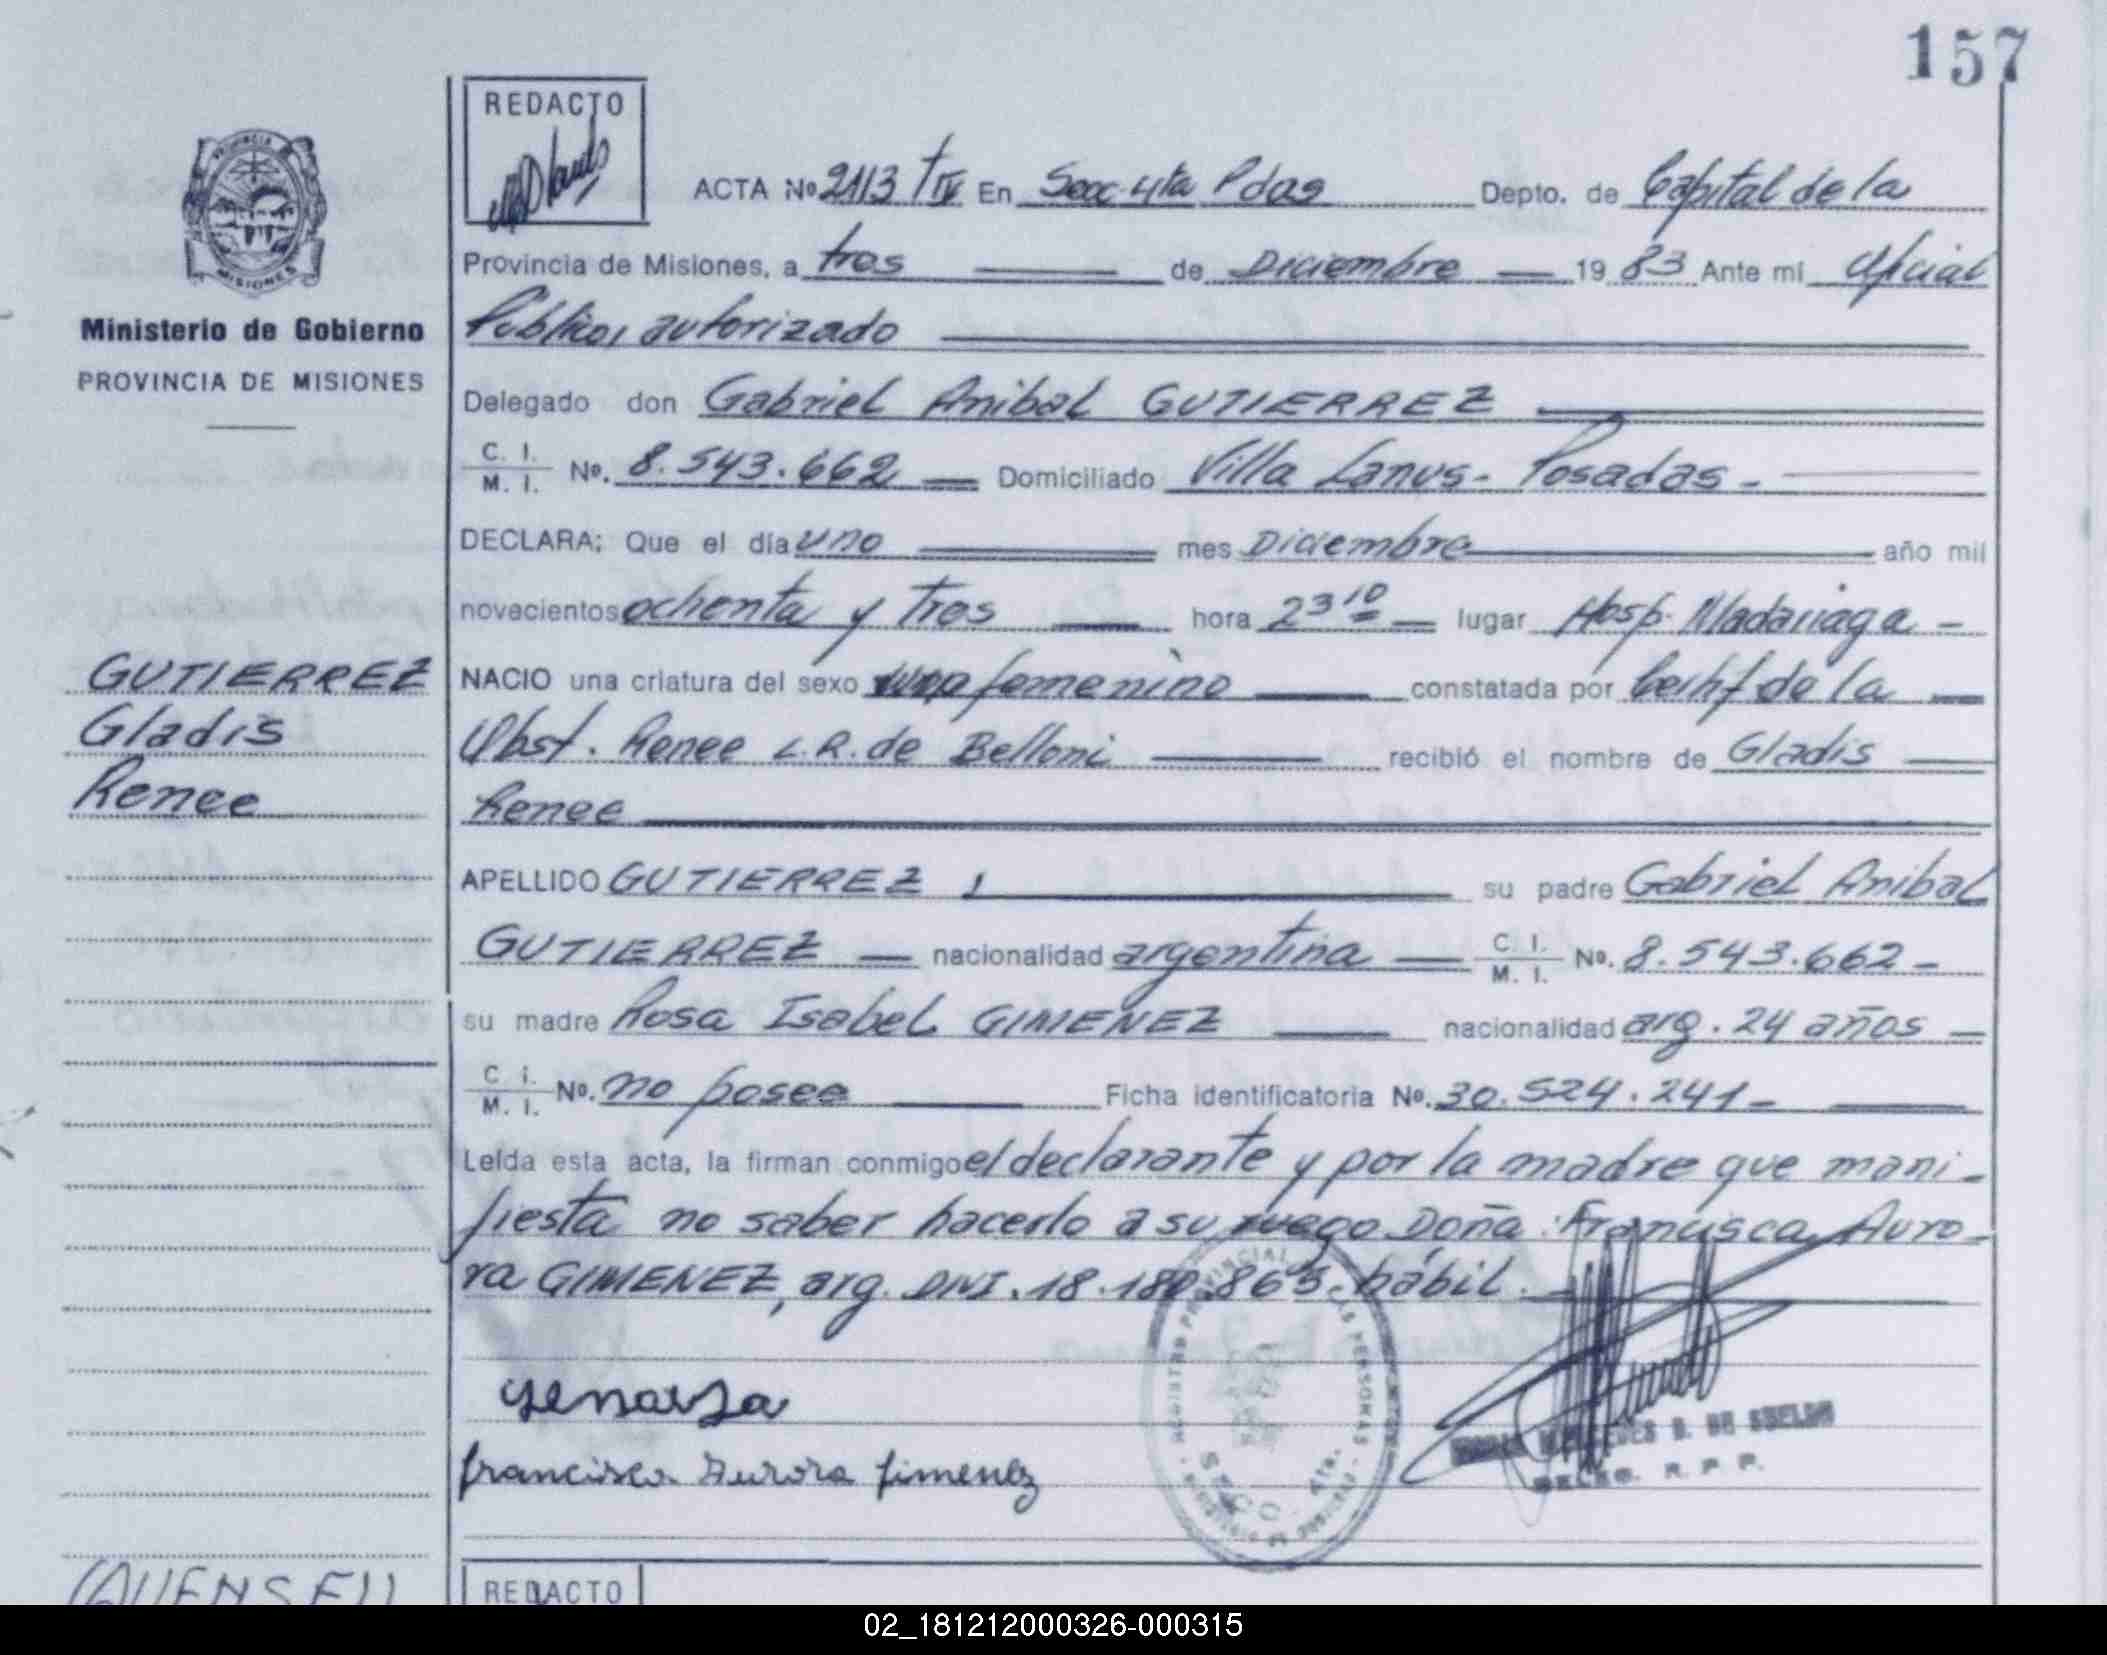 157
REDACTO
ACTA Nº 2113 TIV En Secc 4ta Pdas Depto. de Capital de la
Provincia de Misiones, a tres de Diciembre 1983 Ante mi Oficial
Ministerio de Gobierno
Público, autorizado
PROVINCIA DE MISIONES
Delegado don Gabriel Anibal GUTIERREZ
C. I. M. I. Nº. 8.543.662 Domiciliado Villa Lanus - Posadas -
DECLARA; Que el día uno mes Diciembre año mil
novecientos ochenta y tres hora 23 10 lugar Hosp. Madariaga -
GUTIERREZ
Gladis
Renee
NACIO una criatura del sexo femenino constatada por Certif de la
Obst. Renee L.R. de Belloni recibió el nombre de Gladis
Renee
APELLIDO GUTIERREZ, su padre Gabriel Anibal
GUTIERREZ nacionalidad argentina C. I. M. I. Nº. 8.543.662 -
su madre Rosa Isabel GIMENEZ nacionalidad arg. 24 años
C. I. M. I. Nº. no posee Ficha identificatoria Nº. 30.524.241 -
Leída esta acta, la firman conmigo el declarante y por la madre que mani-
fiesta no saber hacerlo a su ruego Doña Francisca Auro-
ra GIMENEZ, arg. DNI. 18.180.865. hábil.
francisca Aurora Jimenez
DE SUELDO
R. P. P.
REDACTO
02_181212000326-000315